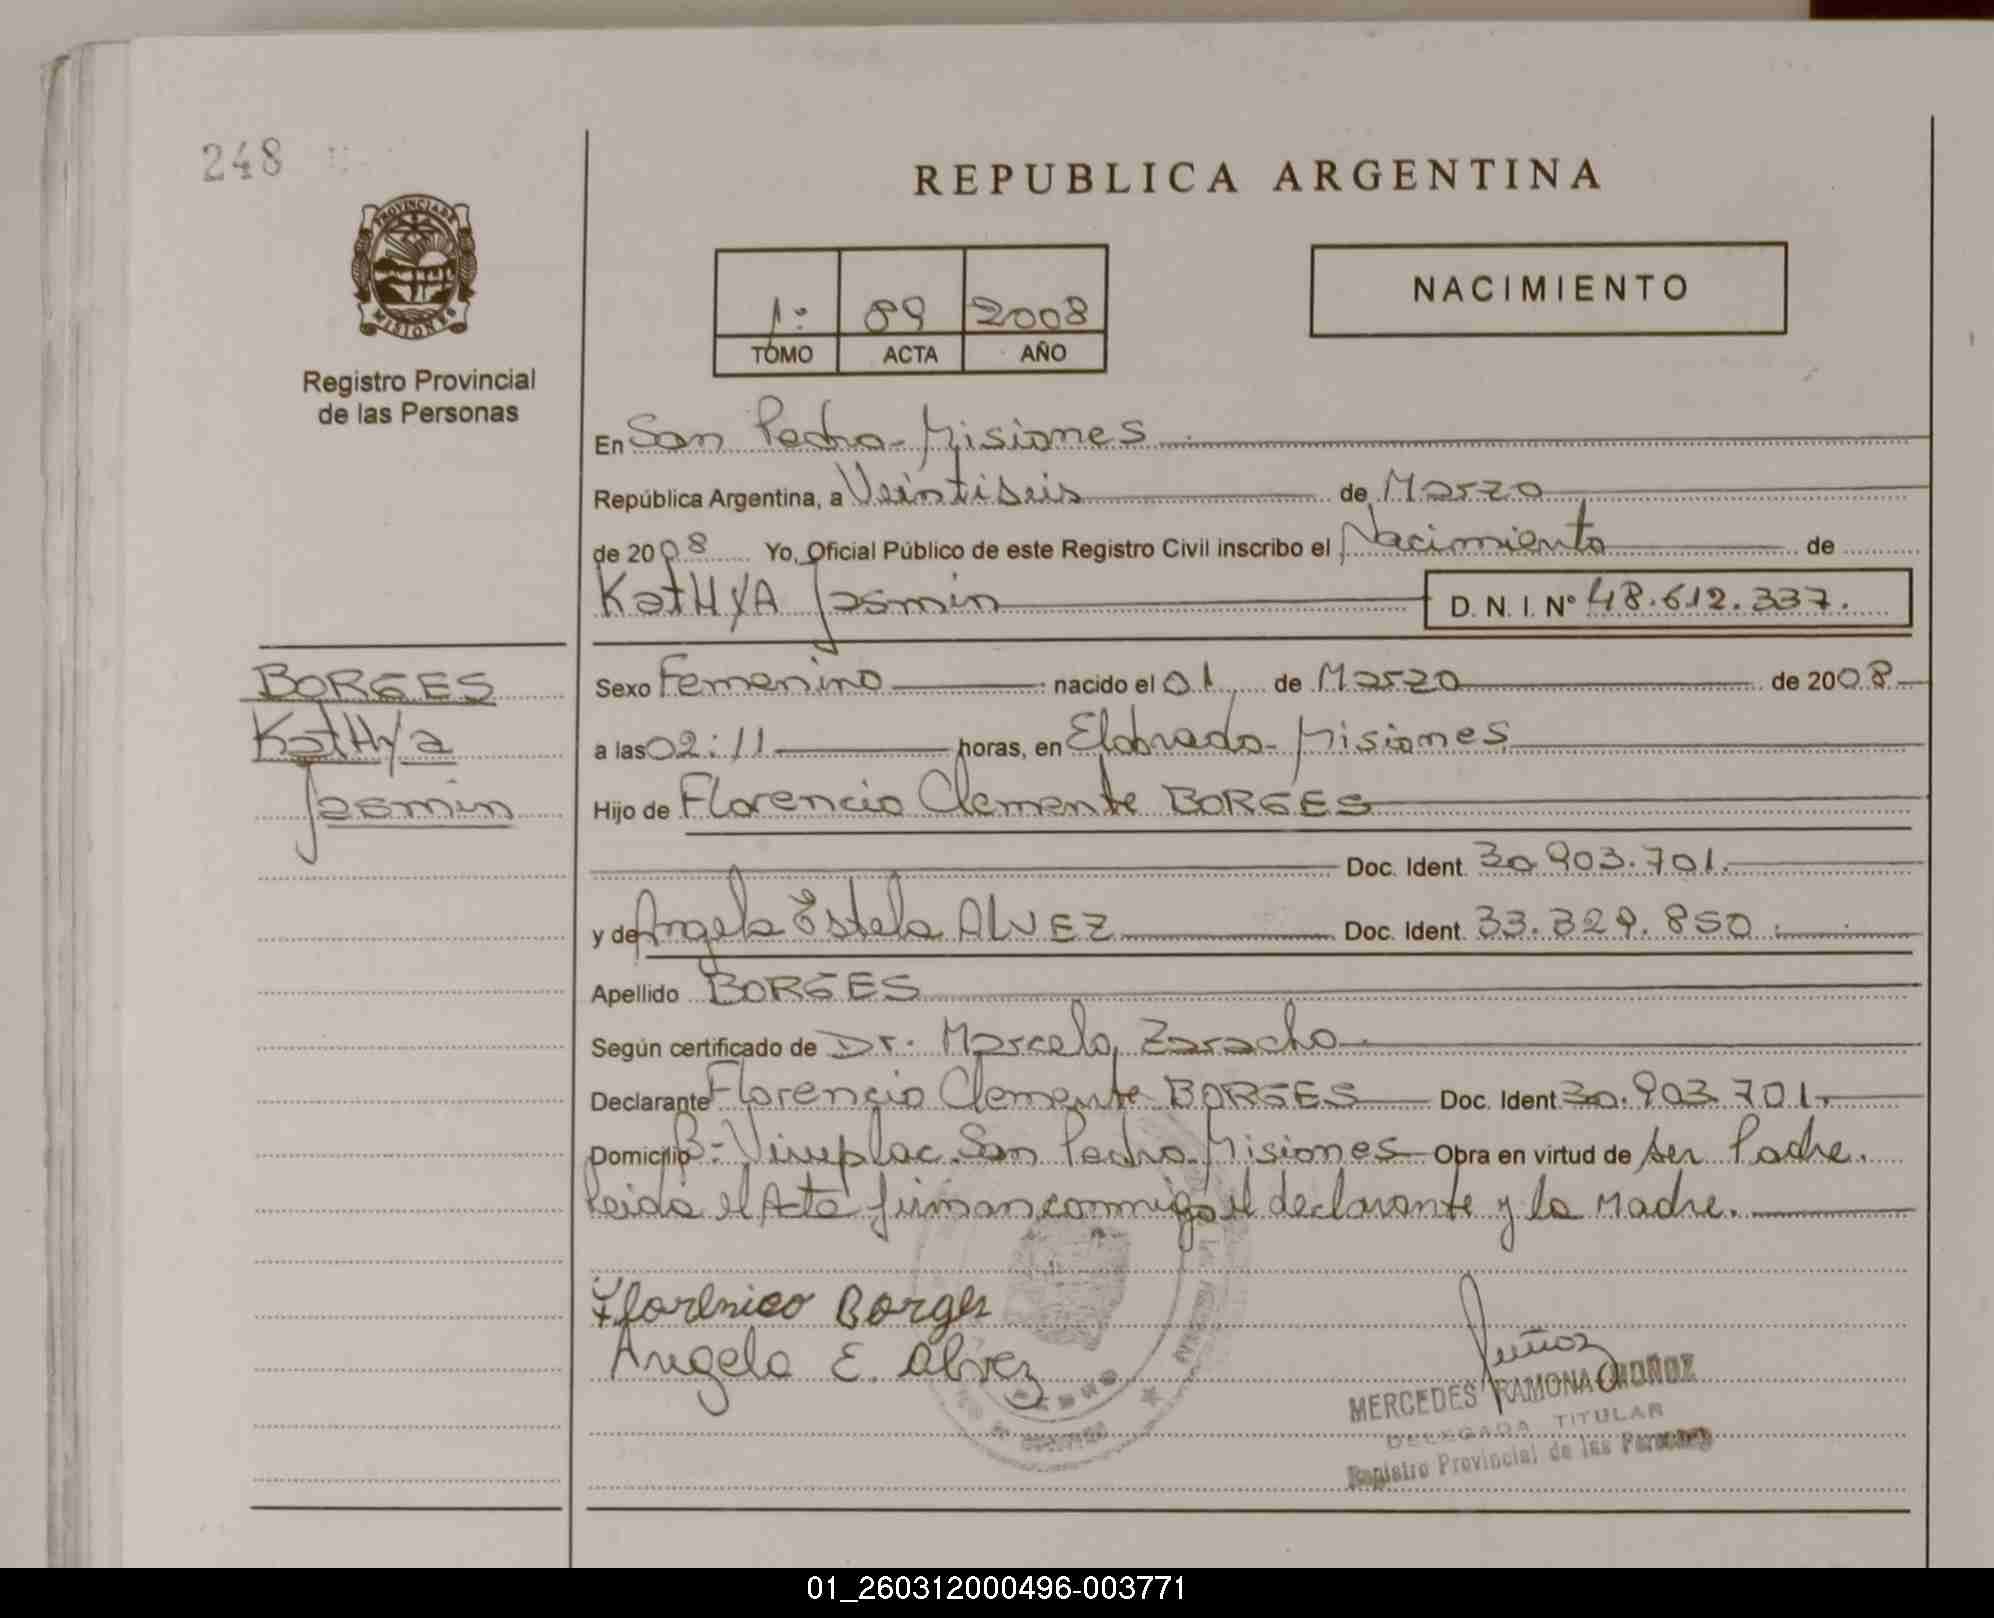 248
REPUBLICA ARGENTINA
PROVINCIA DE
MISIONES
Registro Provincial
de las Personas
1º 89 2008
TOMO ACTA AÑO
NACIMIENTO
En San Pedro - Misiones
República Argentina, a Veintiseis de Marzo
de 2008 Yo, Oficial Público de este Registro Civil inscribo el Nacimiento de
KatHYA Jasmin D. N. I. Nº 48.612.337.
BORGES
KatHya
Jasmin
Sexo Femenino nacido el 01 de Marzo de 2008
a las 02:11 horas, en Eldorado - Misiones
Hijo de Florencio Clemente BORGES
Doc. Ident. 30.903.701.
y de Angela Estela ALVEZ Doc. Ident. 33.329.850.
Apellido BORGES
Según certificado de Dr. Marcelo Zaracho
Declarante Florencio Clemente BORGES Doc. Ident 30.903.701.
Domicilio Bº Viviplac. San Pedro - Misiones Obra en virtud de ser Padre.
Leida el Acta firman conmigo el declarante y la Madre.
Florenico Borges
Angela E. alvez
Muñoz
MERCEDES RAMONA MUÑOZ
DELEGADA TITULAR
Registro Provincial de las Personas
01_260312000496-003771